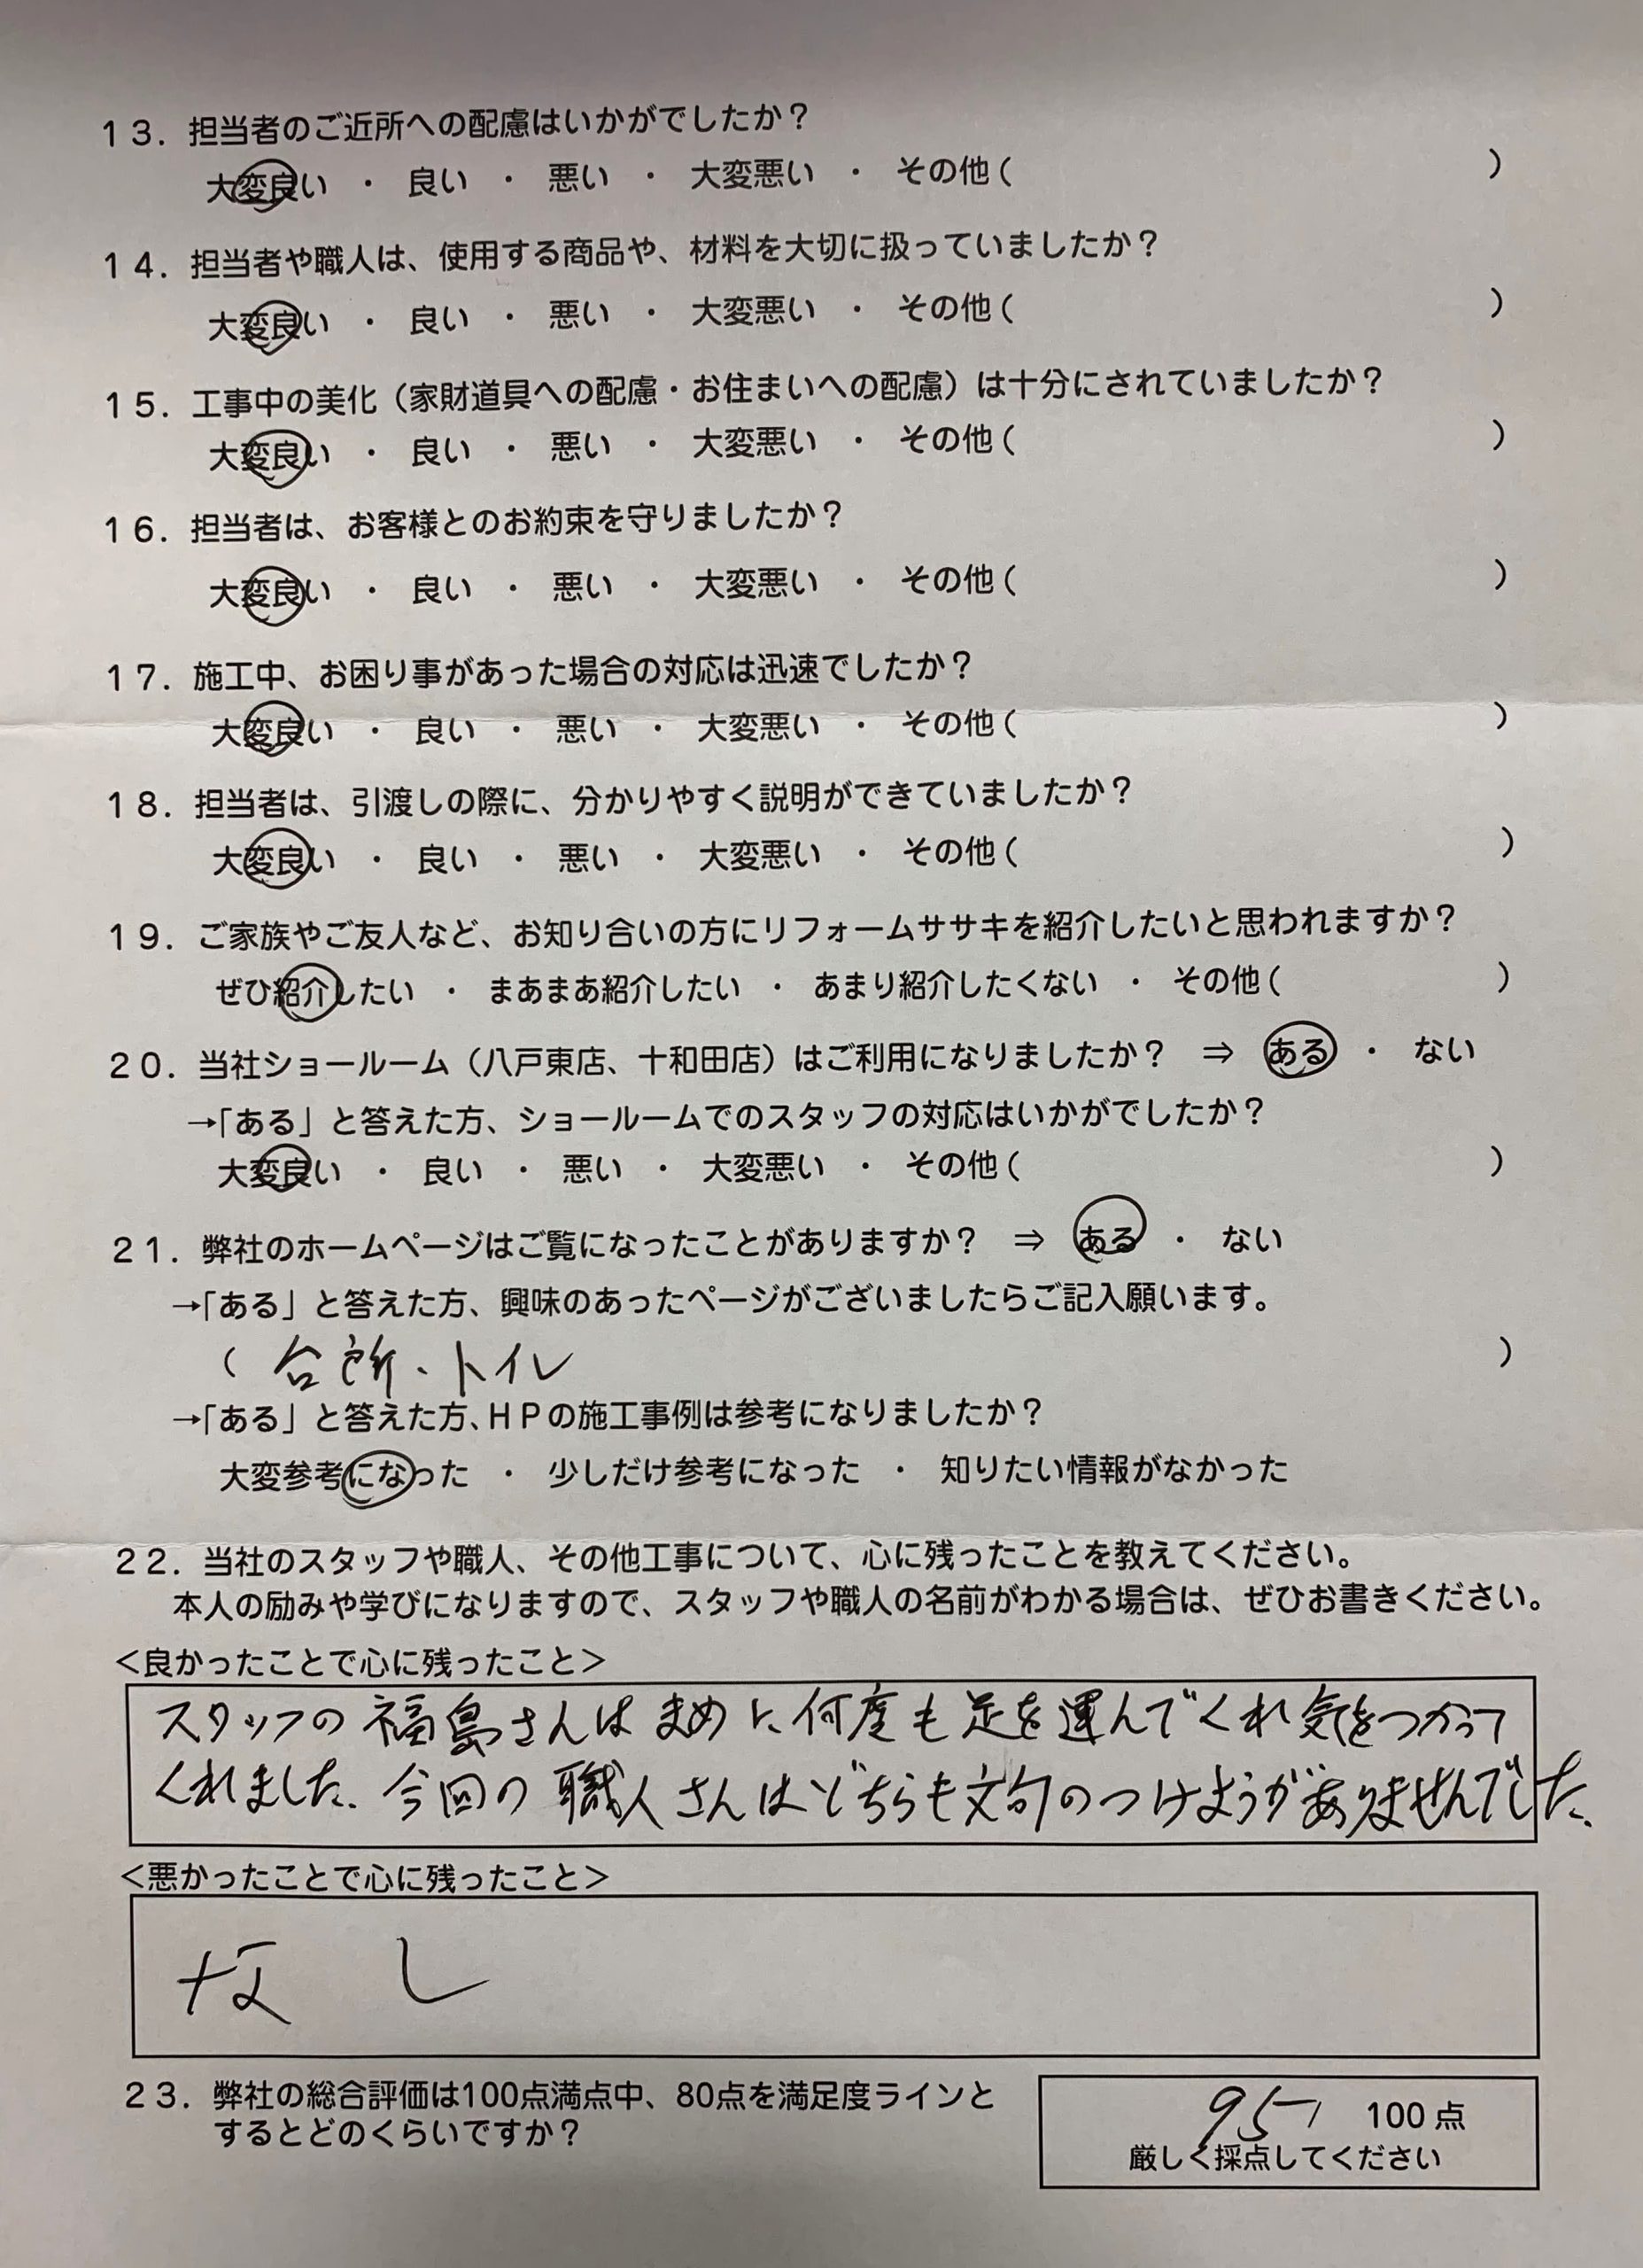 13. 担当者のご近所への配慮はいかがでしたか？
大変良い ・ 良い ・ 悪い ・ 大変悪い ・ その他（ ）
14. 担当者や職人は、使用する商品や、材料を大切に扱っていましたか？
大変良い ・ 良い ・ 悪い ・ 大変悪い ・ その他（ ）
15. 工事中の美化（家財道具への配慮・お住まいへの配慮）は十分にされていましたか？
大変良い ・ 良い ・ 悪い ・ 大変悪い ・ その他（ ）
16. 担当者は、お客様とのお約束を守りましたか？
大変良い ・ 良い ・ 悪い ・ 大変悪い ・ その他（ ）
17. 施工中、お困り事があった場合の対応は迅速でしたか？
大変良い ・ 良い ・ 悪い ・ 大変悪い ・ その他（ ）
18. 担当者は、引渡しの際に、分かりやすく説明ができていましたか？
大変良い ・ 良い ・ 悪い ・ 大変悪い ・ その他（ ）
19. ご家族やご友人など、お知り合いの方にリフォームササキを紹介したいと思われますか？
ぜひ紹介したい ・ まあまあ紹介したい ・ あまり紹介したくない ・ その他（ ）
20. 当社ショールーム（八戸東店、十和田店）はご利用になりましたか？ ⇒ ある ・ ない
→「ある」と答えた方、ショールームでのスタッフの対応はいかがでしたか？
大変良い ・ 良い ・ 悪い ・ 大変悪い ・ その他（ ）
21. 弊社のホームページはご覧になったことがありますか？ ⇒ ある ・ ない
→「ある」と答えた方、興味のあったページがございましたらご記入願います。
（ 台所、トイレ ）
→「ある」と答えた方、ＨＰの施工事例は参考になりましたか？
大変参考になった ・ 少しだけ参考になった ・ 知りたい情報がなかった
22. 当社のスタッフや職人、その他工事について、心に残ったことを教えてください。
本人の励みや学びになりますので、スタッフや職人の名前がわかる場合は、ぜひお書きください。
＜良かったことで心に残ったこと＞
スタッフの福島さんはまめに何度も足を運んでくれ気をつかって
くれました。今回の職人さんはどちらも文句のつけようがありませんでした。
＜悪かったことで心に残ったこと＞
なし
23. 弊社の総合評価は100点満点中、80点を満足度ラインと
するとどのくらいですか？
95 / 100点
厳しく採点してください